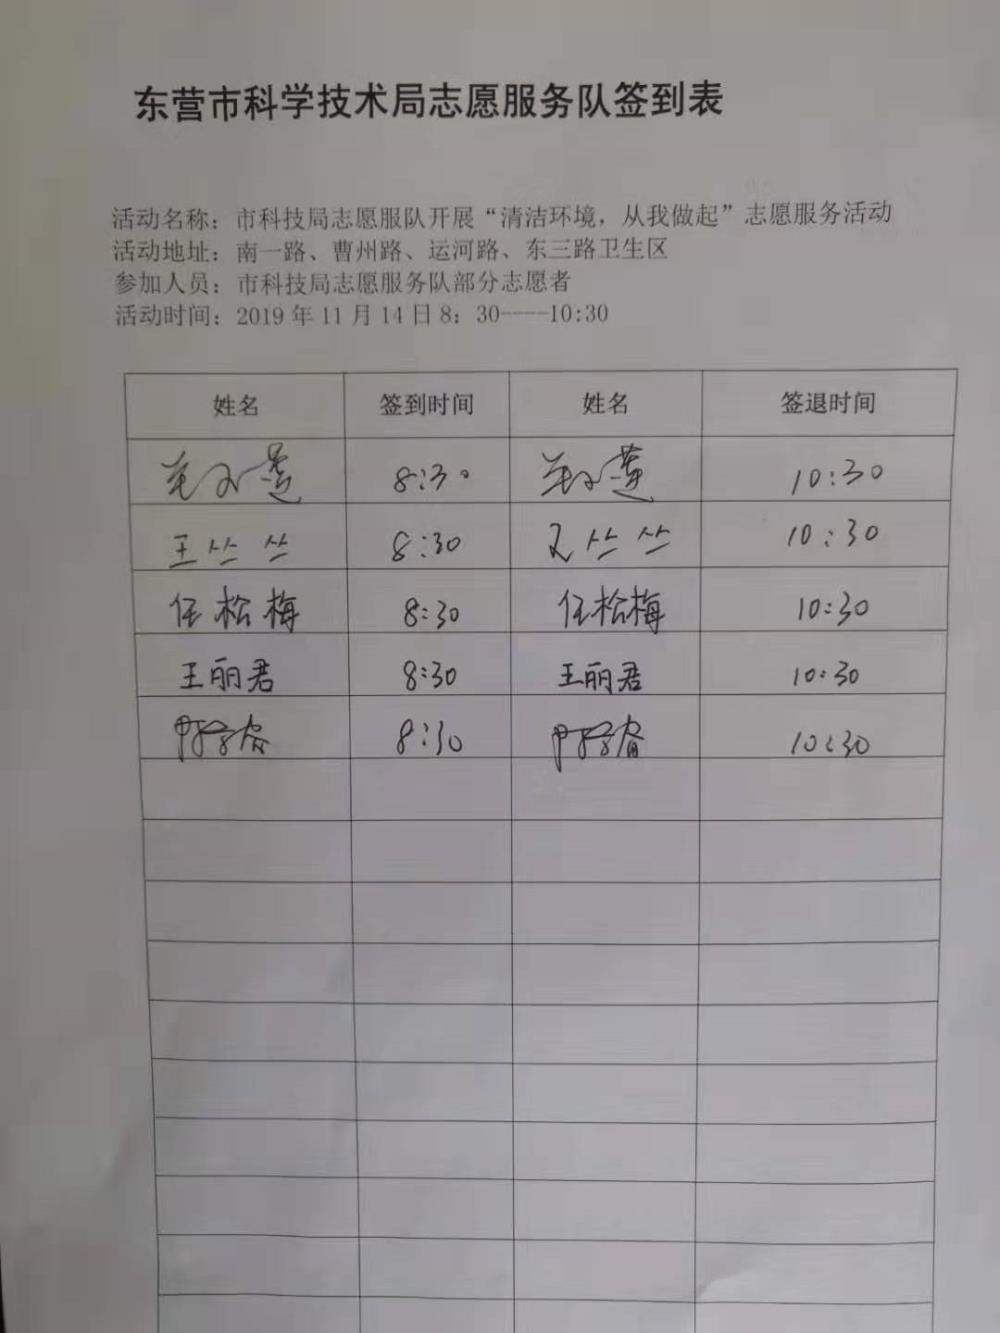 东营市科学技术局志愿服务队签到表
活动名称：市科技局志愿服队开展“清洁环境，从我做起”志愿服务活动
活动地址：南一路、曹州路、运河路、东三路卫生区
参加人员：市科技局志愿服务队部分志愿者
活动时间：2019年11月14日8：30——10:30
姓名 签到时间 姓名 签退时间
8:30 10:30
王竺竺 8:30 王竺竺 10:30
任松梅 8:30 任松梅 10:30
王丽君 8:30 王丽君 10:30
8:30 10:30